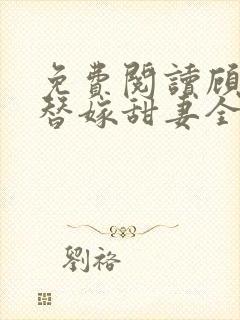 免費閱讀顧
替嫁甜妻全
劉裕